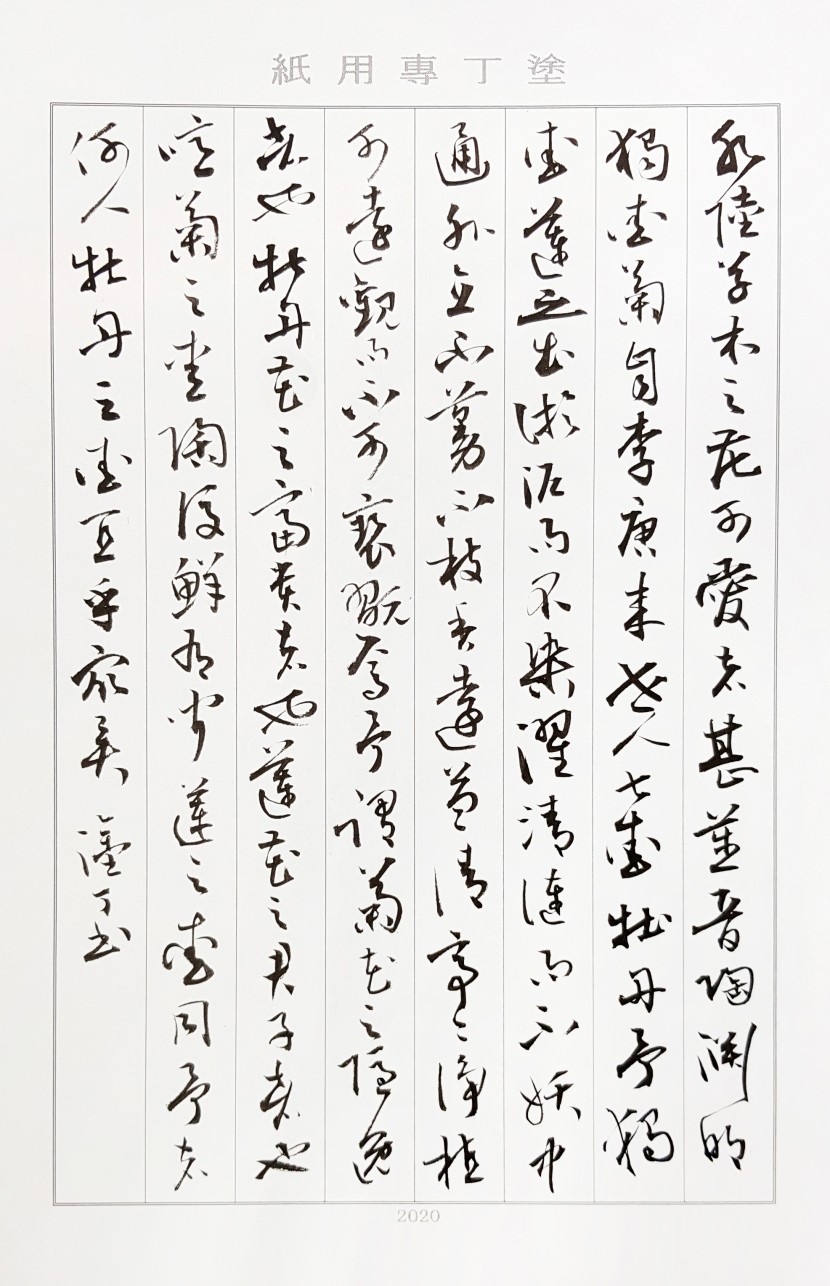 塗丁專用紙
水陸草木之花可愛者甚蕃晉陶淵明
獨愛菊自李唐來世人甚愛牡丹予獨
愛蓮之出淤泥而不染濯清漣而不妖中
通外直不蔓不枝香遠益清亭亭淨植
可遠觀而不可褻翫焉予謂菊花之隱逸
者也牡丹花之富貴者也蓮花之君子者也
噫菊之愛陶後鮮有聞蓮之愛同予者
何人牡丹之愛宜乎眾矣 塗丁書
2020